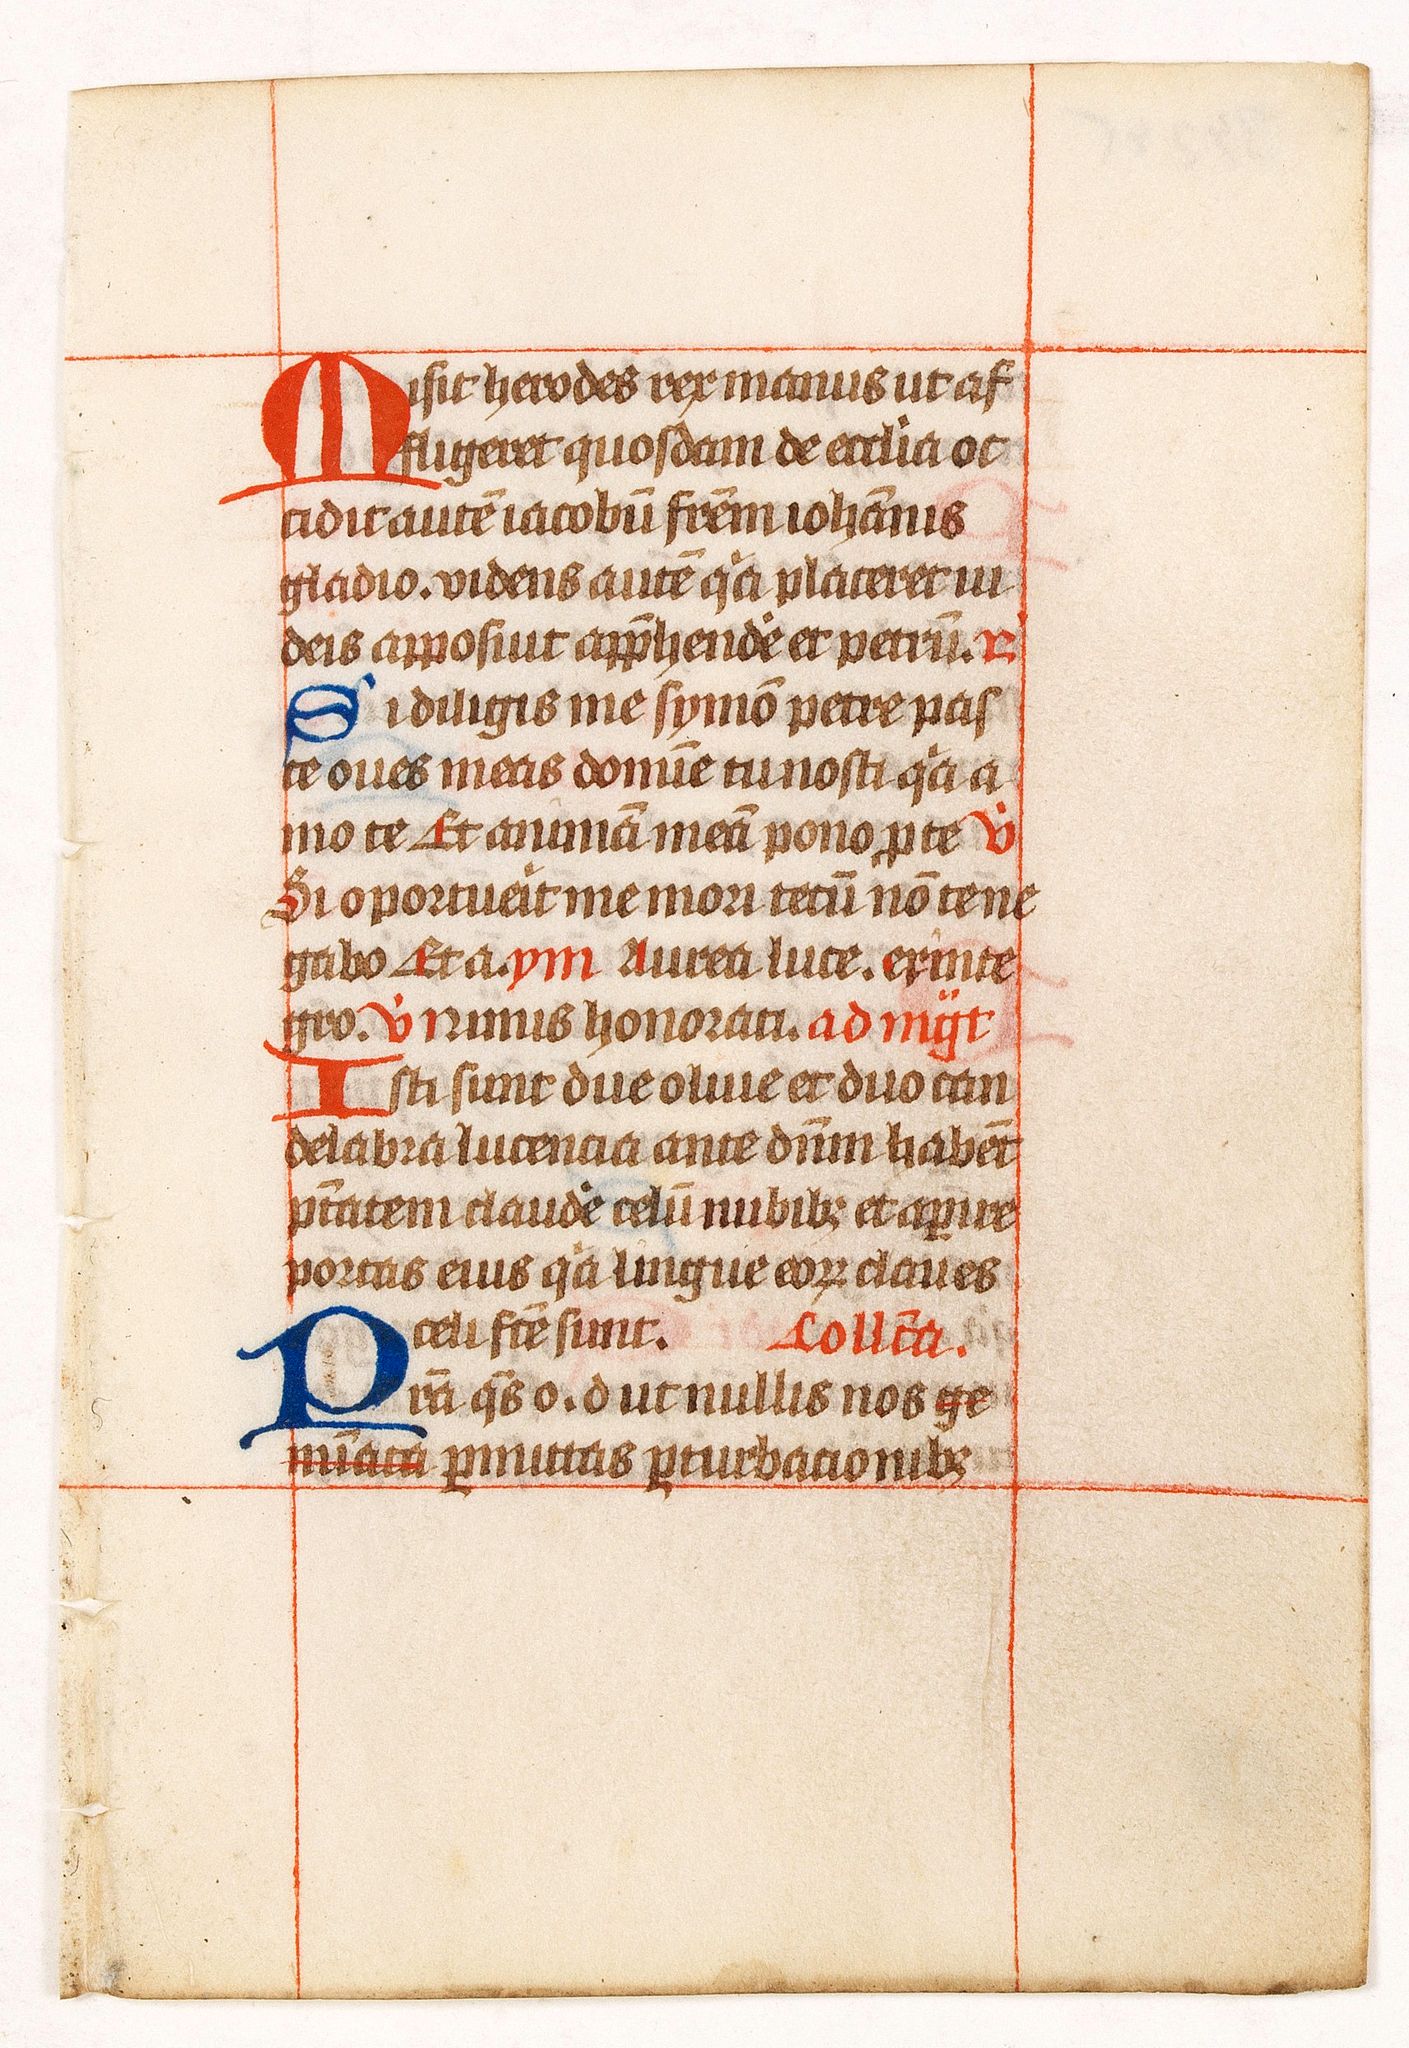 Misit herodes rex manus ut af
fligeret quosdam de ecclia oc
cidit autē iacobū frēm iohānis
gladio. videns autē qͥa placeret iu
deis apposuit app̄hende͛ et petrū. R͛
Si diligis me symō petre pas
ce oues meas domīe tu nosti qͥa a
mo te Et animā meā pono ꝓ te V͛
Si oportue͛it me mori tecū nō te ne
gabo Et a. ym Aurea luce. exinte
gro. V͛ Nimis honorati. ad mgͣt
Isti sunt due oliue et duo can
delabra lucencia ante dn̄m habēt
pt̄atem claude͛ celū nubibꝫ et aꝑire
portas eius qͥa lingue eoꝝ claues
celi fc̄e sunt. Collc̄a.
Prā qs̄ o. d ut nullis nos ge
mīata ꝑmittas ꝑturbacionibꝫ